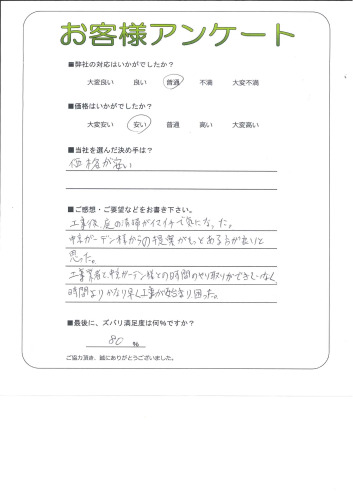 お客様アンケート
■弊社の対応はいかがでしたか？
大変良い 良い 普通 不満 大変不満
■価格はいかがでしたか？
大変安い 安い 普通 高い 大変高い
■当社を選んだ決め手は？
価格が安い
■ご感想・ご要望などをお書き下さい。
工事後、庭の清掃がイマイチで気になった。
ガーデン様からの提案がもっとある方が良いと
思った。
工事業者と ガーデン様との時間のやり取りができていなく
時間よりかなり早く工事が始まり困った。
■最後に、ズバリ満足度は何％ですか？
80 ％
ご協力頂き、誠にありがとうございました。